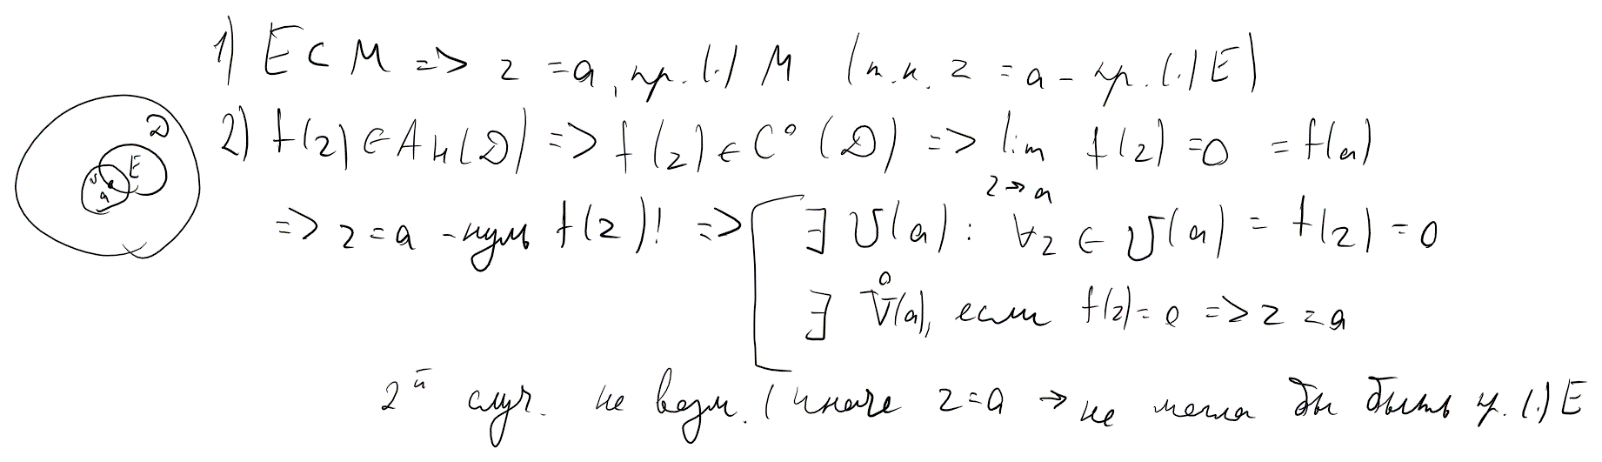 1) E ⊂ M => z = a, пр. (.) M (т.к. z = a - пр. (.) E)
D
E
U
a
2) f(z) ∈ A_H(D) => f(z) ∈ C⁰(D) => lim_{z→a} f(z) = 0 = f(a)
=> z = a - нуль f(z)! => [ ∃ U(a) : ∀z ∈ U(a) = f(z) = 0
∃ Ů(a), если f(z) = 0 => z = a
2й случ. не возм. (иначе z = a → не могла бы быть пр. (.) E